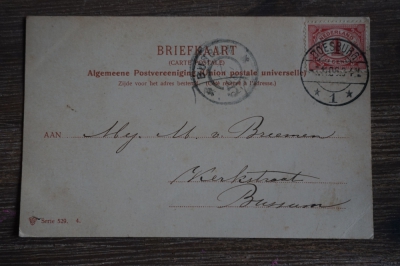 BRIEFKAART
(CARTE POSTALE)
Algemeene Postvereeniging Union postale universelle
Zijde voor het adres bestemd (Côté réservé à l'adresse)
DOESBURG
1
AAN Mej. M. v. Breemen
Kerkstraat
Bussum
Serie 529. 4.